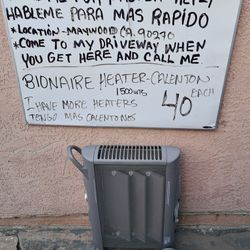 HABLEME PARA MAS RAPIDO
*LOCATION-MAYWOOD CA. 90270
*COME TO MY DRIVEWAY WHEN
YOU GET HERE AND CALL ME
BIONAIRE HEATER-CALENTON
1500WTS EACH
I HAVE MORE HEATERS 40
TENGO MAS CALENTONES